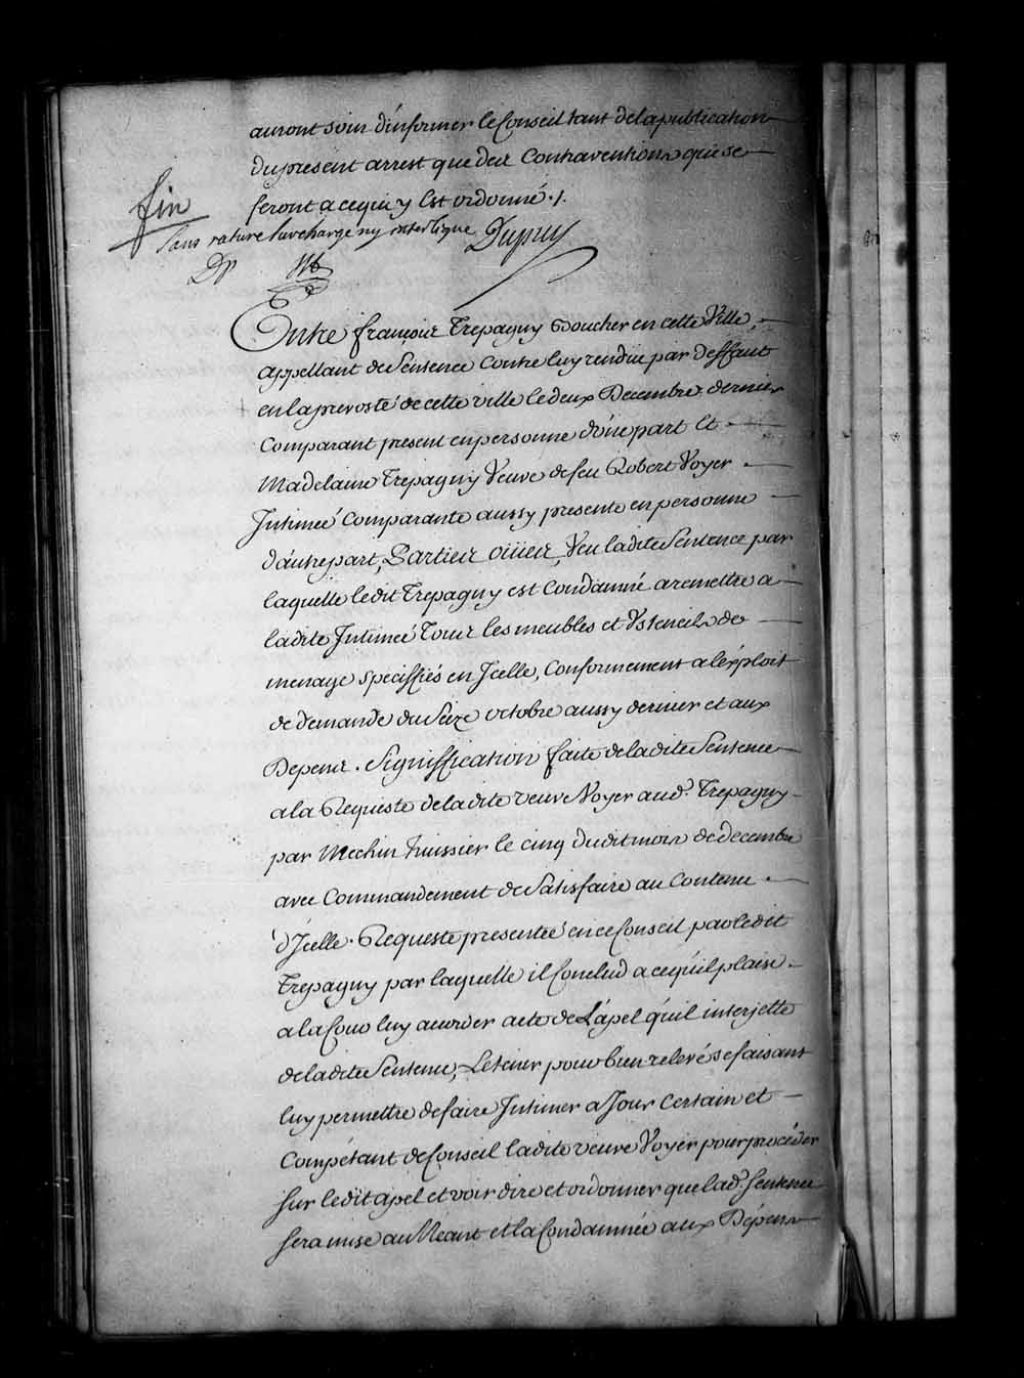 auront soin d'informer le Conseil tant de la publication
du present arrest que des Contraventions qui se
feront a ce qui y Est ordonné ./.
fin
Sans rature surcharge ny interligne Dupuy
Dp
Entre françois Trepagny Boucher en cette Ville,
appellant de Sentence Contre luy rendüe par deffaut
en la prevosté de cette ville le deux Decembre dernier
Comparant present en personne d'une part Et
Madelaine Trepagny Veuve de feu Robert Voyer
Intimeé Comparante aussy presente en personne
d'autre part, Parties oüies, Veu ladite Sentence par
laquelle ledit Trepagny est Condamné a remettre a
ladite Intimeé Tous les meubles et Ustencils de
menage speciffiés en Icelle, Conformement a l'exploit
de demande du Seize octobre aussy dernier et aux
Depens. Signiffication faite de ladite Sentence
a la Requeste de ladite veuve Voyer aud. Trepagny
par Mechin huissier le cinq dudit mois de decembre
avec Commandement de Satisfaire au Contenu
d'Icelle. Requeste presenteé en ce Conseil par ledit
Trepagny par laquelle il Conclud a ce qu'il plaise
a la Cour luy accorder acte de L'apel qu'il interjette
de ladite Sentence, Le tenir pour bien relevé se faisant
luy permettre de faire Intimer a Jour Certain et
Compétant de Conseil ladite veuve Voyer pour procéder
sur ledit apel et voir dire et ordonner que lad. sentence
sera mise au Néant et la Condamnée aux Dépens